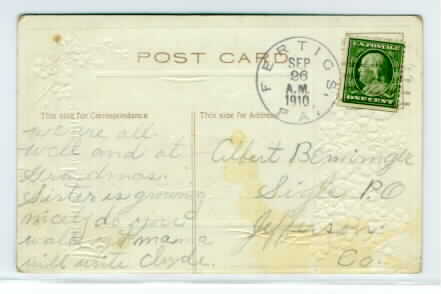 POST CARD
FERTIGS,
SEP
26
A.M.
1910
PA.
U.S. POSTAGE
ONE CENT
This side for Correspondence
This side for Address
we are all
well and at
Grandmas
Sister is growing
nicely do you
walk yet mama
will write Clyde.
Albert
Sigle P.O
Jefferson
Co.